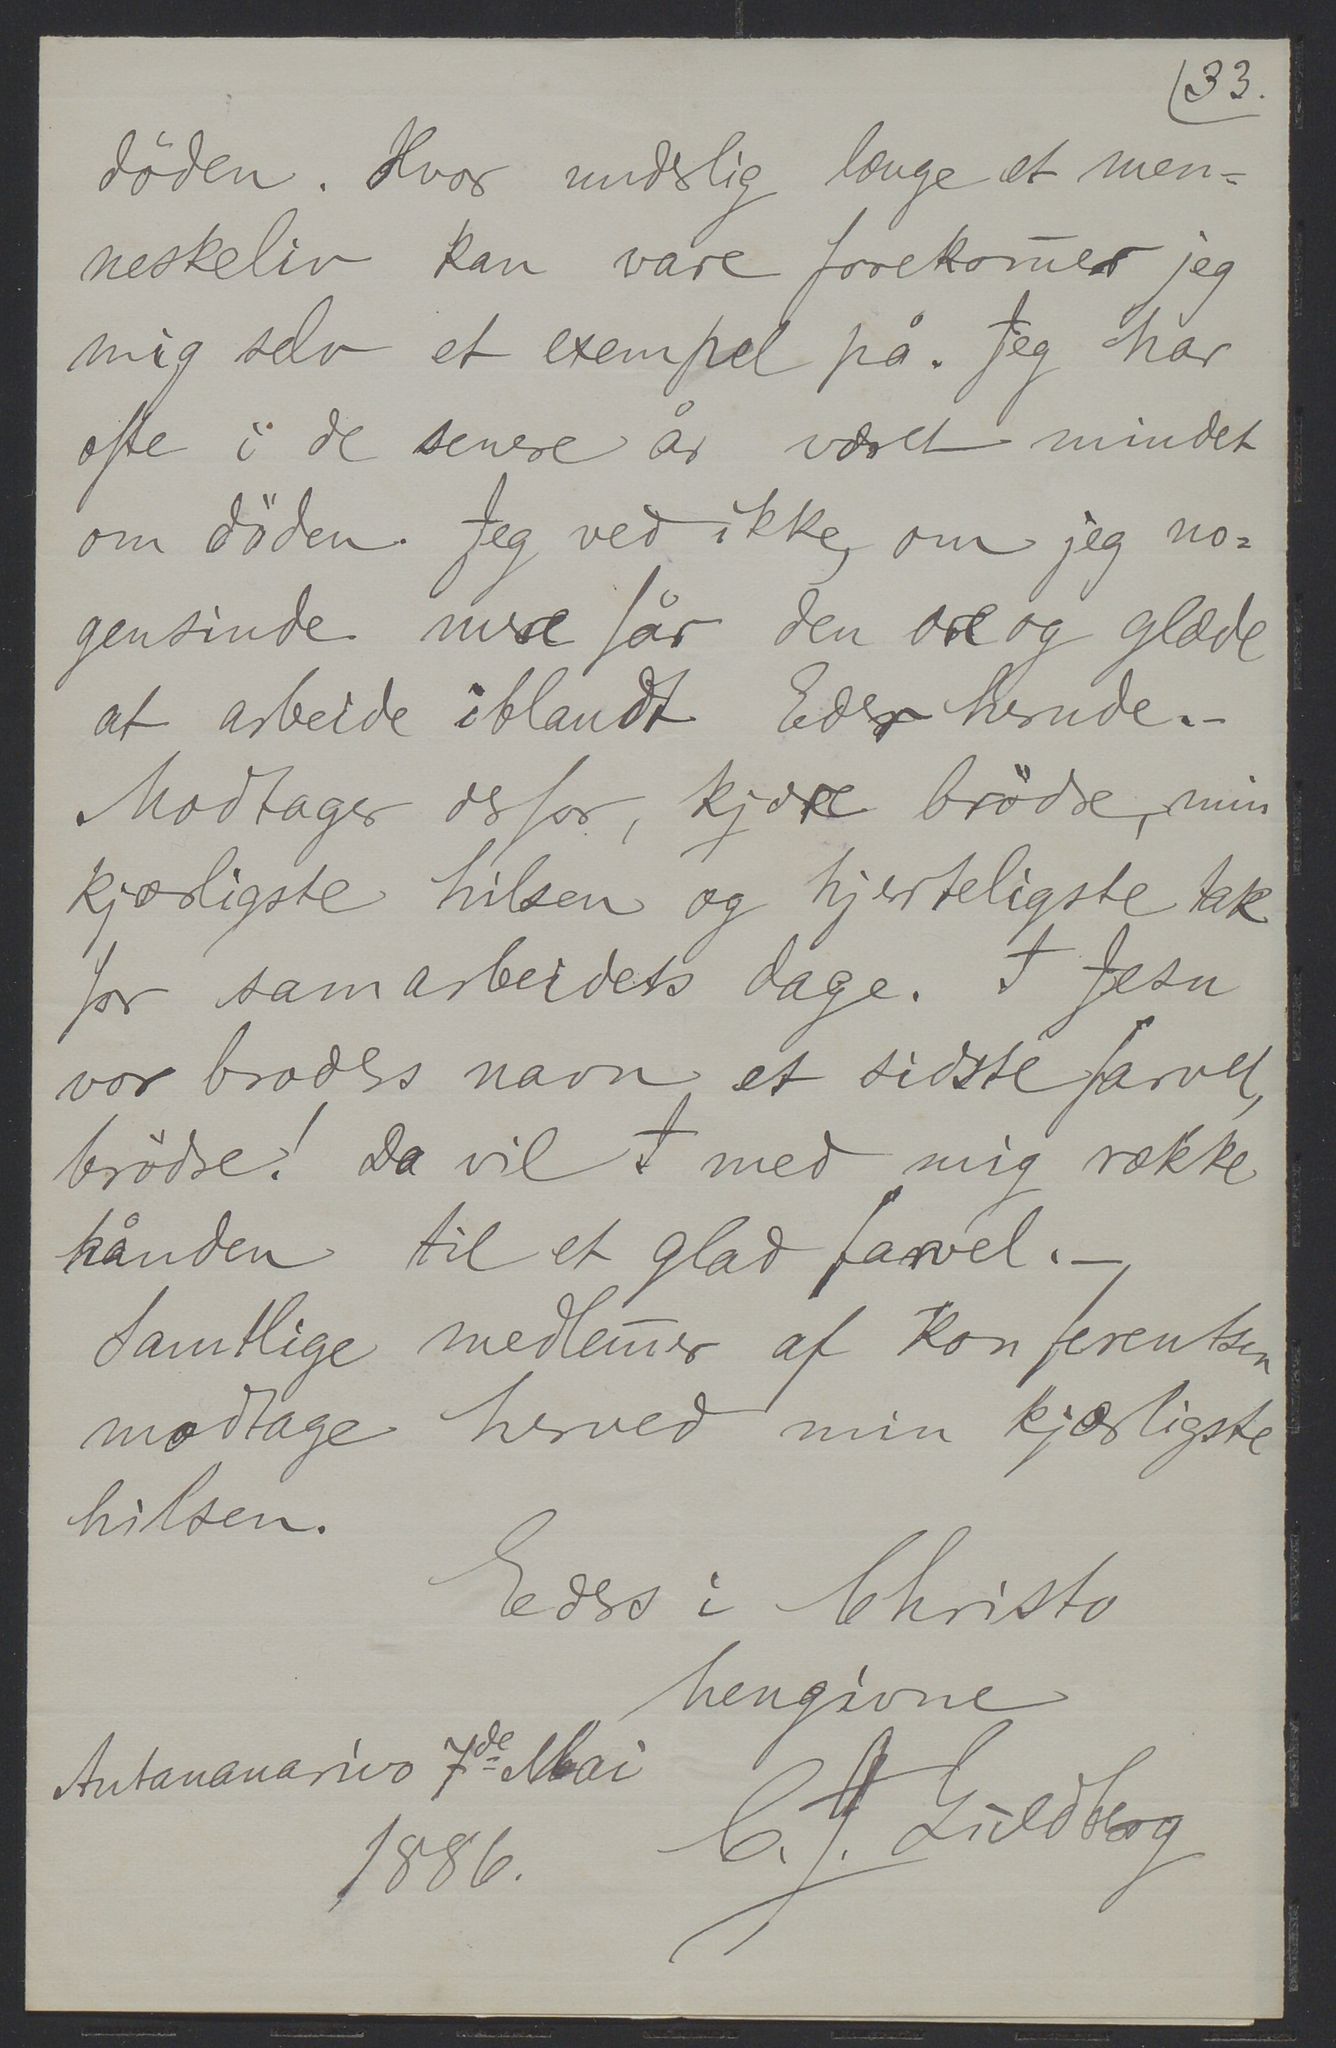 33.
döden. Hvor underlig længe et men=
neskeliv kan vare forekom̅er jeg
mig selv et exempel på. Jeg har
ofte i de senere år været mindet
om döden. Jeg ved ikke, om jeg no=
gensinde mere får den ære og glæde
at arbeide iblandt Eder herude.-
Modtager derfor, kjære brödre, min
kjærligste hilsen og hjerteligste tak
for samarbeidets dage. I Jesu
vor broders navn et sidste farvel,
brödre! Da vil I med mig række
hånden til et glad farvel.-
Samtlige medlem̅er af Konferentsen
modtage herved min kjærligste
hilsen.
Eders i Christo
hengivne
Antananarivo 7de Mai
C. J. Guldberg
1886.